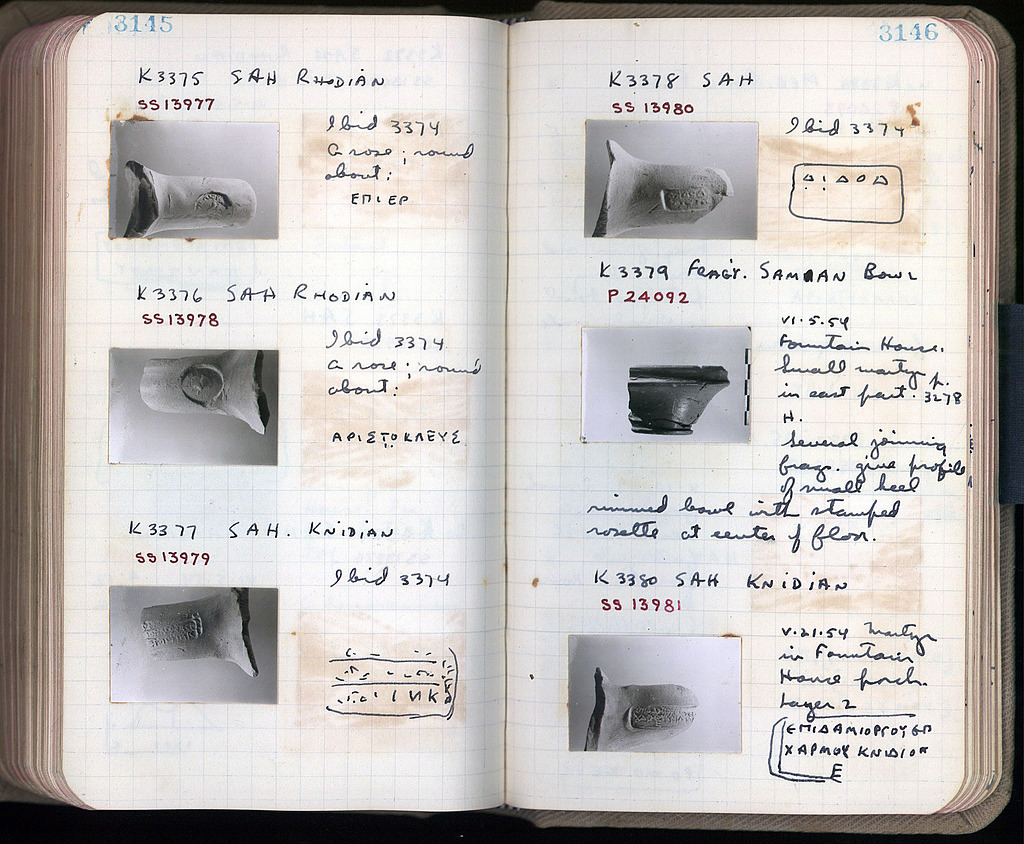 3145
K 3375 SAH RHODIAN
SS 13977
Ibid 3374
a rose; round
about:
ΕΠΙΕΡ
K 3376 SAH RHODIAN
SS 13978
Ibid 3374
a rose; round
about:
ΑΡΙΣΤΟΚΛΕΥΣ
K 3377 SAH. KNIDIAN
SS 13979
Ibid 3374
3146
K 3378 SAH
SS 13980
Ibid 3374
K 3379 FRAGT. SAMIAN BOWL
P 24092
VI.5.54
Fountain House.
Small martyr p.
in east part. 3278
H.
Several joining
frags. give profile
of small heel
rimmed bowl with stamped
rosette at center of floor.
K 3380 SAH KNIDIAN
SS 13981
V.21.54 Martyr
in Fountain
House porch.
Layer 2
ΕΠΙΔΑΜΙΟΡΓΟΥ ΕΡ
ΧΑΡΜΟΥ ΚΝΙΔΙΟΝ
Ε